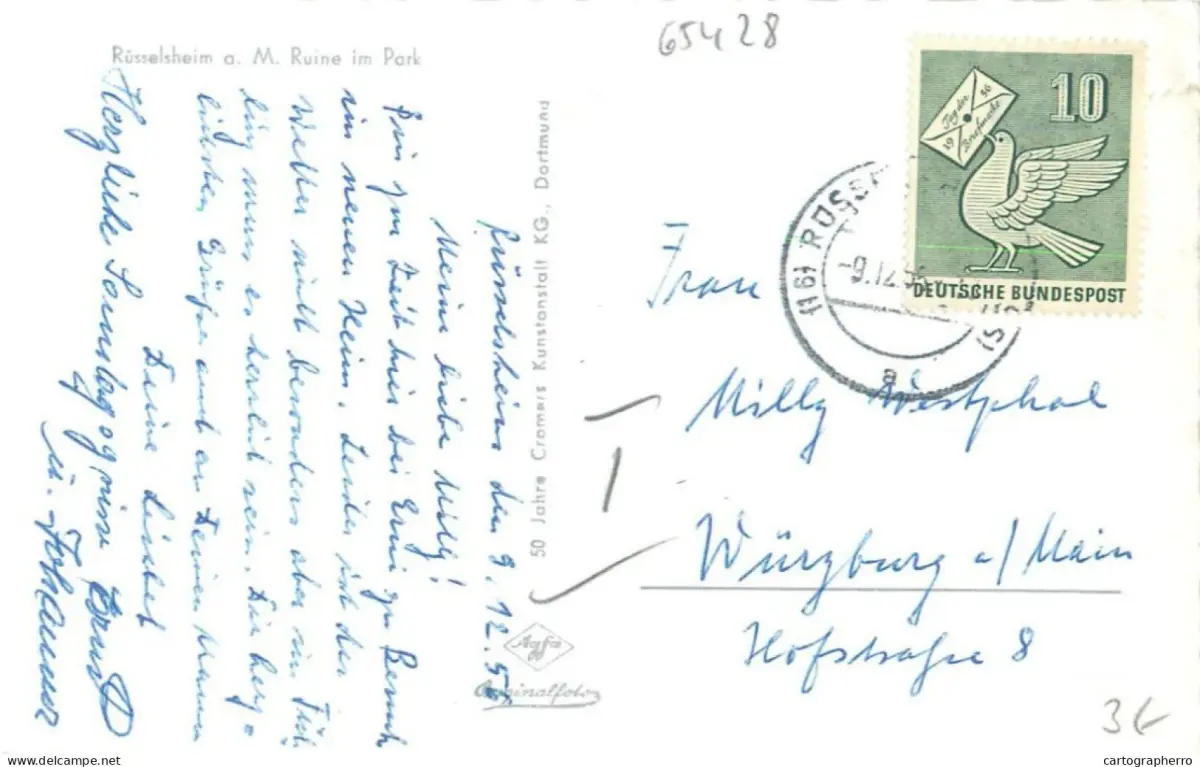 65428
Rüsselsheim a. M. Ruine im Park
Rüsselsheim den 9.12.56
Meine liebe Milly!
Bin zur Zeit hier bei Erni zu Besuch
im neuen Heim. Leider ist das
Wetter nicht besonders aber im Früh-
ling muss es herrlich sein. Dir herz-
lichste Grüße auch an Deinen Mann
Deine
Herzliche Sonntagsgrüsse
u. Johannes
50 Jahre Cramers Kunstanstalt KG., Dortmund
Agfa
Originalfoto
10
Tag der
Briefmarke
19 56
DEUTSCHE BUNDESPOST
(16) RÜSS
-9.12.56
a
Frau
Milly Westphal
Würzburg a/Main
Hofstraße 8
3€
www.delcampe.net
cartographerro